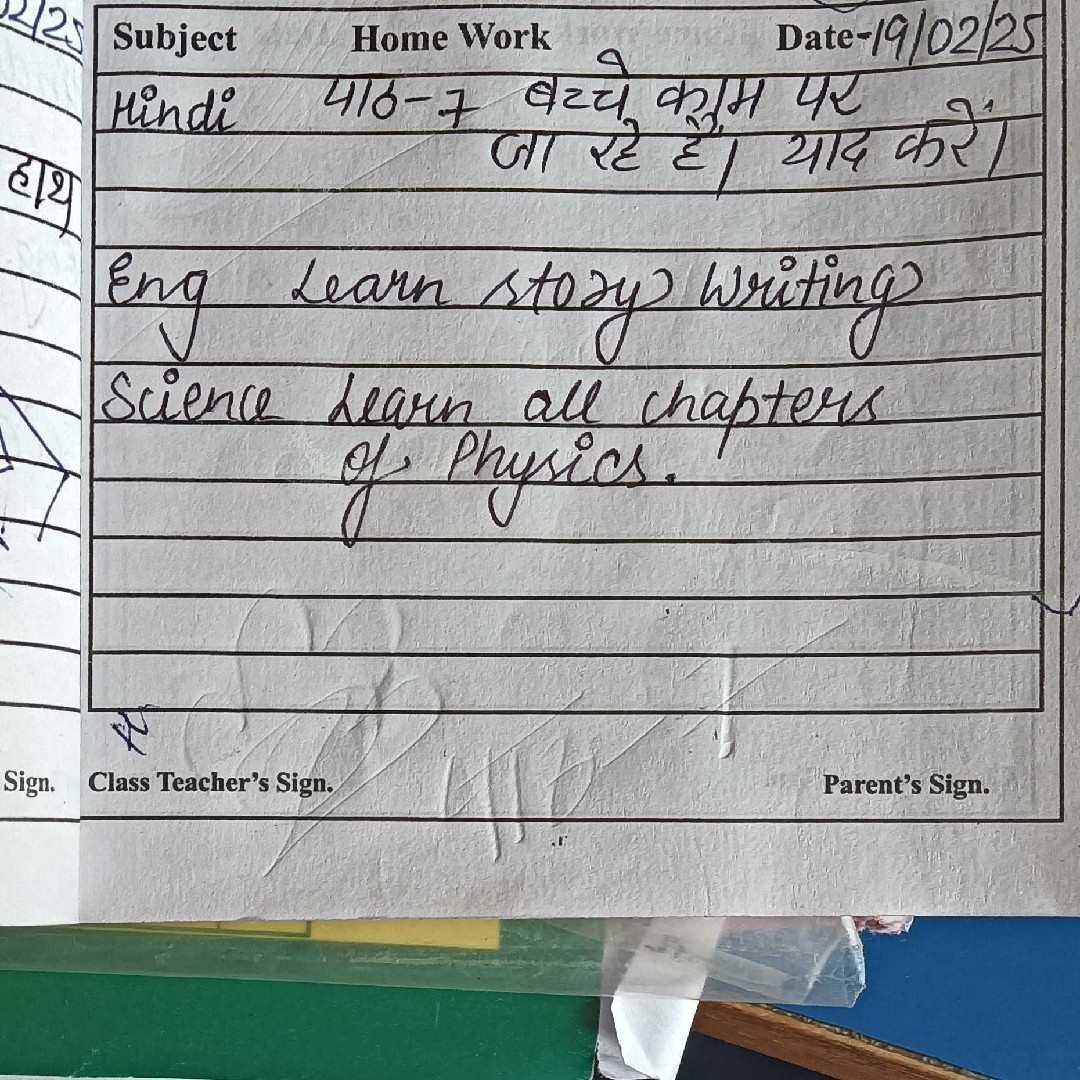 02/25
हाथ
Sign.
Subject Home Work Date-19/02/25
Hindi पाठ-7 बच्चे काम पर
जा रहे हैं। याद करें।
Eng Learn story Writing
Science Learn all chapters
of Physics.
Class Teacher's Sign. Parent's Sign.